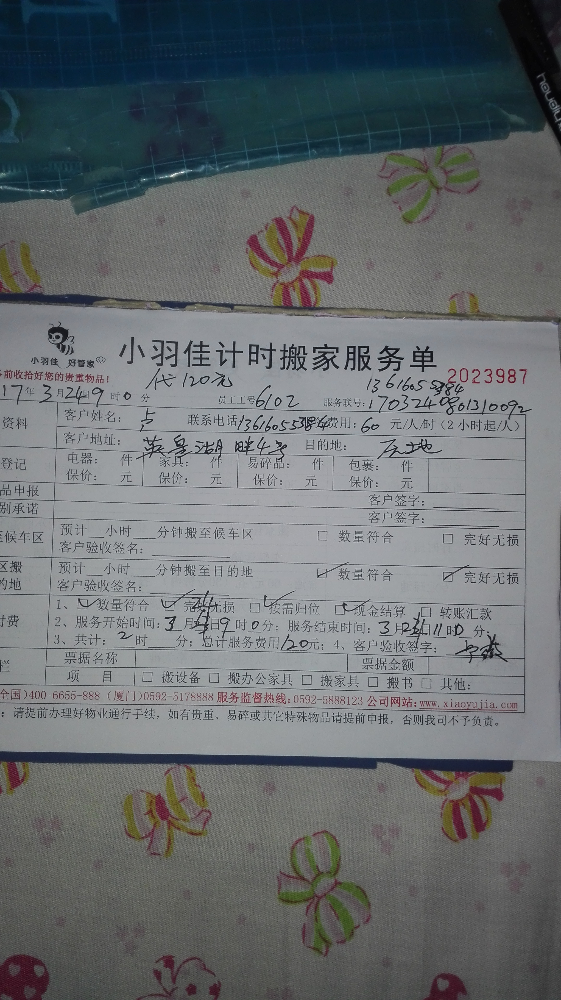 小羽佳 好管家
小羽佳计时搬家服务单
2023987
前收拾好您的贵重物品！
代120元
17年3月24日9时0分
员工工号6102
服务联号：1703240801310092
资料 客户姓名：卢 联系电话 费用：60元/人/时（2小时起/人）
客户地址：英皇湖畔4号 目的地：
登记 电器： 件 家具： 件 易碎品： 件 包裹： 件
保价： 元 保价： 元 保价： 元 保价： 元
品申报 客户签字：
别承诺 客户签字：
至候车区 预计__小时___分钟搬至候车区 □ 数量符合 □ 完好无损
客户验收签名：
区搬 预计__小时___分钟搬至目的地 ☑ 数量符合 ☑ 完好无损
的地 客户验收签名：
1、☑数量符合 ☑完好无损 ☑按需归位 ☑现金结算 □ 转账汇款
付费 2、服务开始时间：3月24日9时0分；服务结束时间：3月24日11时0分；
3、共计：2时___分；总计服务费用120元；4、客户验收签字：
栏 票据名称 票据金额
项 目 □ 搬设备 □ 搬办公家具 □ 搬家具 □ 搬书 □ 其他：
全国)400 6655-888 (厦门)0592-5178888 服务监督热线:0592-5888123 公司网站:www.xiaoyujia.com
：请提前办理好物业通行手续，如有贵重、易碎或其它特殊物品请提前申报，否则我司不予负责。